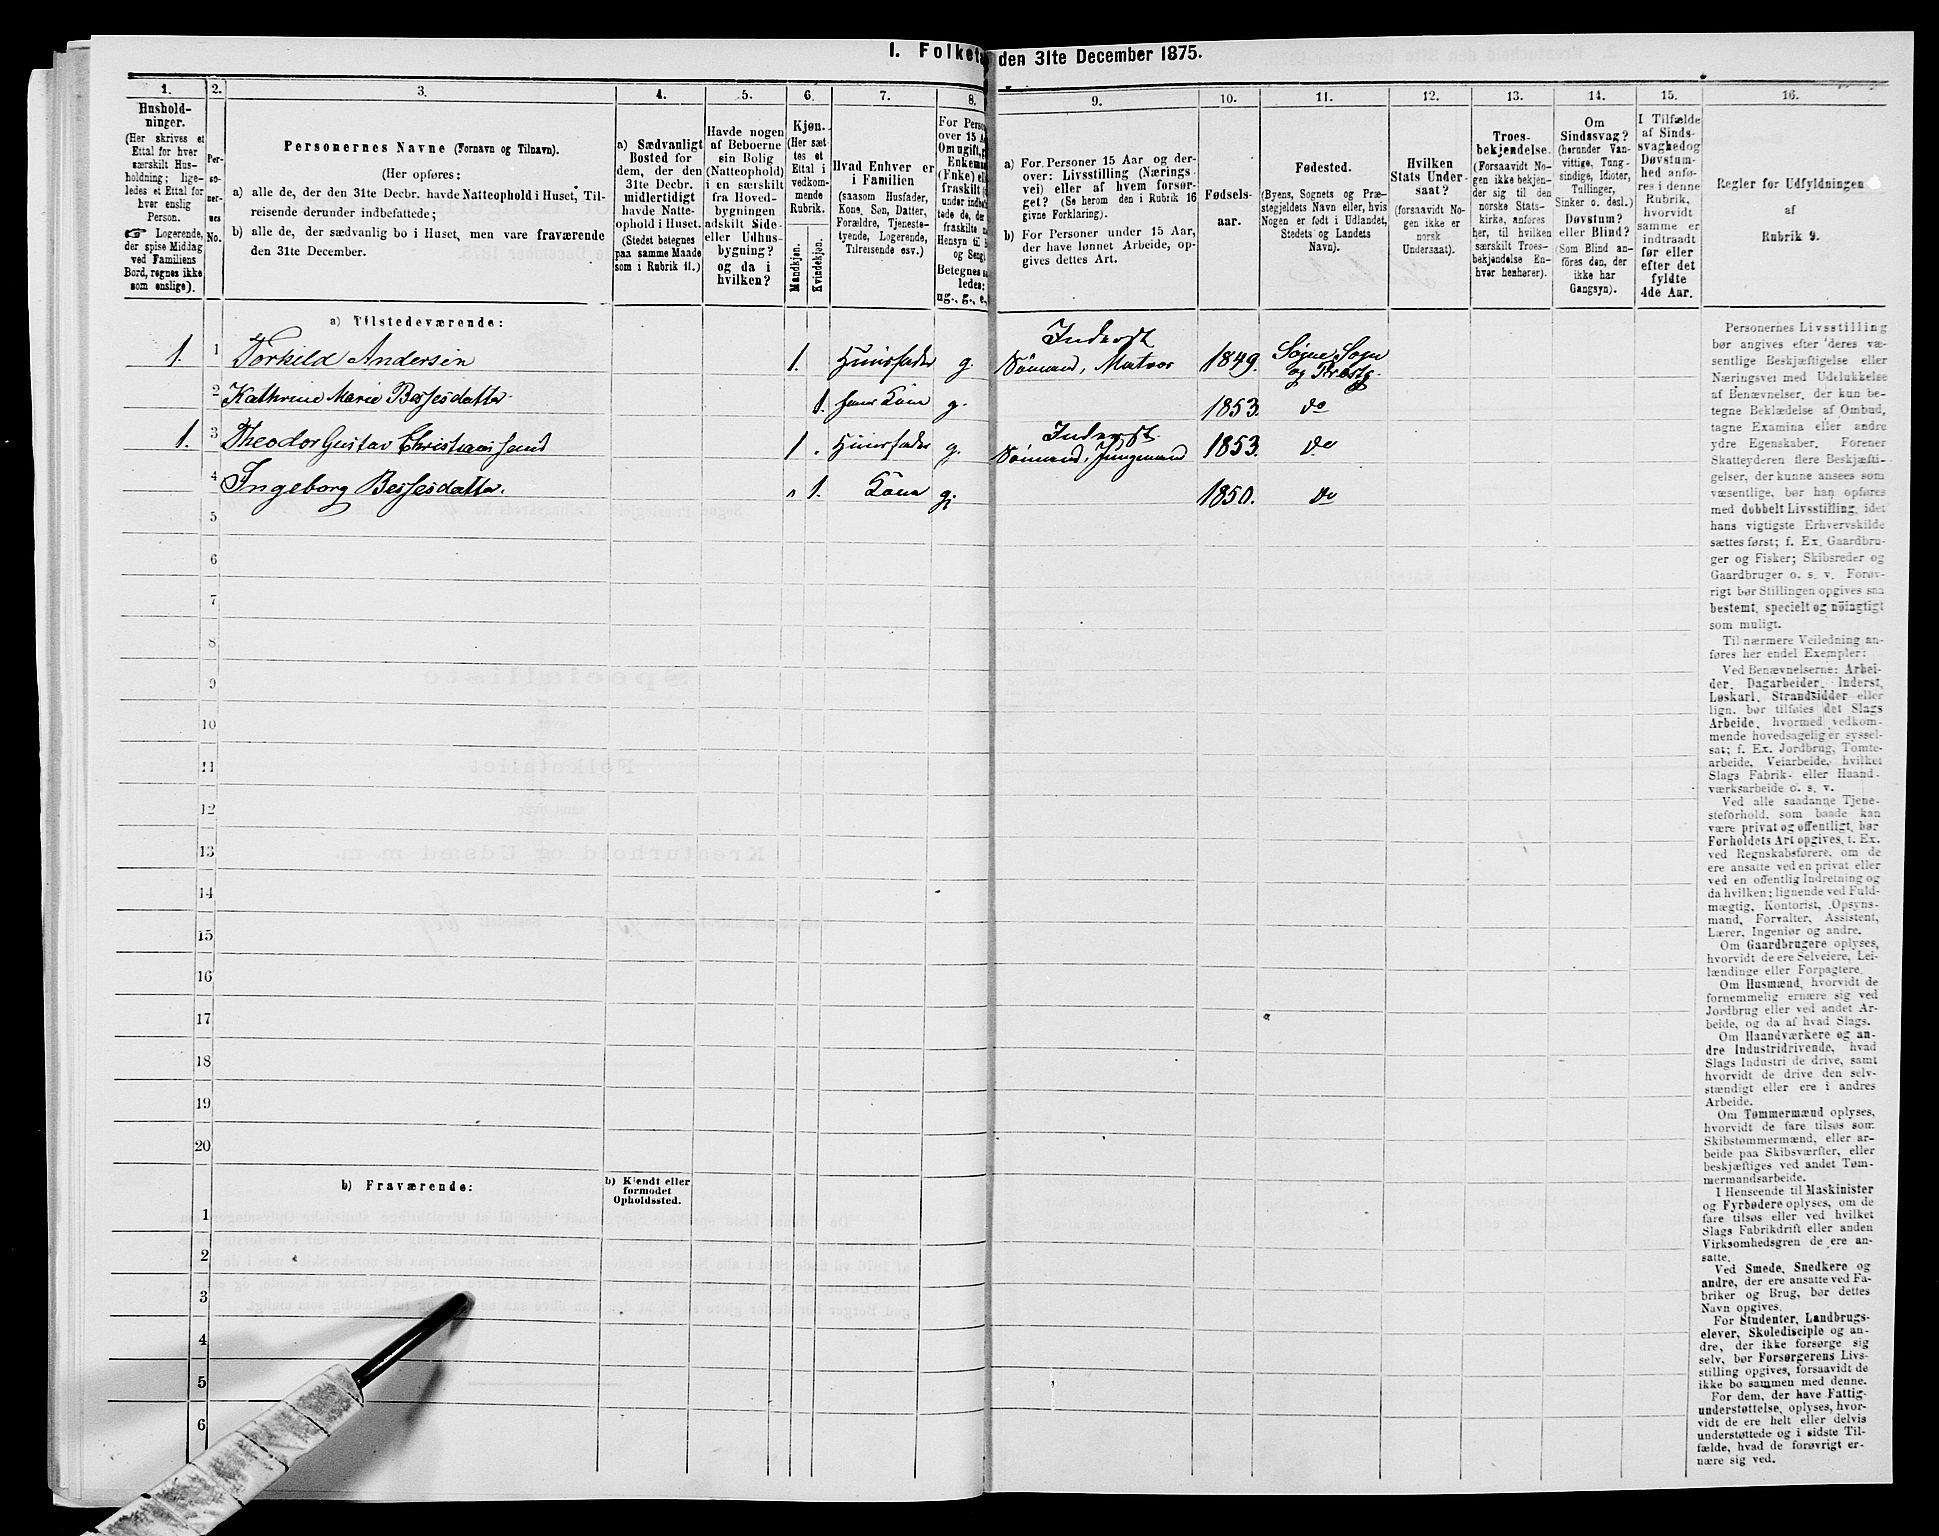 I. Folketæ den 31te December 1875.
1.
2.
3.
4.
5.
6.
7.
8.
9.
10.
11.
12.
13.
14.
15.
16.
Hushold-
ninger.
(Her skrives et
Ettal for hver
særskilt Hus-
holdning; lige-
ledes et Ettal for
hver enslig
Person.
☞ Logerende,
der spise Middag
ved Familiens
Bord, regnes ikke
som enslige).
Per-
so-
ner-
nes
No.
Personernes Navne (Fornavn og Tilnavn).
(Her opføres:
a) alle de, der den 31te Decbr. havde Natteophold i Huset, Til-
reisende derunder indbefattede;
b) alle de, der sædvanlig bo i Huset, men vare fraværende
den 31te December.
a) Sædvanligt
Bosted for
dem, der den
31te Decbr.
midlertidigt
havde Natte-
ophold i Huset.
(Stedet betegnes
paa samme Maade
som i Rubrik 11.)
Havde nogen
af Beboerne
sin Bolig
(Natteophold)
i en særskilt
fra Hoved-
bygningen
adskilt Side-
eller Udhus-
bygning?
og da i
hvilken?
Kjøn.
(Her sæt-
tes et
Ettal i
vedkom-
mende
Rubrik.
Mandkjøn.
Kvindekjøn.
Hvad Enhver er
i Familien
(saasom Husfader,
Kone, Søn, Datter,
Forældre, Tjeneste-
tyende, Logerende,
Tilreisende osv.)
For Perso
over 15 A
Om ugift, g
Enkema
(Enke) el
fraskilt
under indb
tede de, der
fraskilte
Hensyn til
og Seng)
Betegnes s
ledes:
ug., g., e.,
a) For Personer 15 Aar og der-
over: Livsstilling (Nærings
vei) eller af hvem forsør-
get? (Se herom den i Rubrik 16
givne Forklaring).
b) For Personer under 15 Aar,
der have lønnet Arbeide, op-
gives dettes Art.
Fødsels-
aar.
Fødested.
(Byens, Sognets og Præ-
stegjeldets Navn eller, hvis
Nogen er født i Udlandet,
Stedets og Landets
Navn).
Hvilken
Stats Under-
saat?
(forsaavidt No-
gen ikke er
norsk
Undersaat).
Troes-
bekjendelse.
(Forsaavidt No-
gen ikke bekjen-
der sig til den
norske Stats-
kirke, anføres
her, til hvilken
særskilt Troes-
bekjendelse En-
hver henhører).
Om
Sindssvag?
(herunder Van-
vittige, Tung-
sindige, Idioter,
Tullinger,
Sinker o. desl.)
Døvstum?
eller Blind?
(Som Blind an-
føres den, der
ikke har
Gangsyn).
I Tilfælde
af Sinds-
svaghed og
Døvstum-
hed anfø-
res i denne
Rubrik,
hvorvidt
samme er
indtraadt
før eller
efter det
fyldte
4de Aar.
Regler for Udfyldningen
af
Rubrik 9.
a) Tilstedeværende:
1. 1 Torkild Andersen 1. Huusfader g. Inderst Sømand, Matros 1849. Søgne Sogn og Præstg
2 Kathrine Marie Bessesdatter 1. hans Kone g. 1853. do
1. 3 Theodor Gustav Christianssand 1 . Huusfader g. Inderst. Sømand, Jungmand 1853. do
4 Ingeborg Bessesdatter. 1. Kone g. 1850. do
5
6
7
8
9
10
11
12
13
14
15
16
17
18
19
20
b) Fraværende:
b) Kjendt eller
formodet
Opholdssted.
1
2
3
4
5
6
Personernes Livsstilling
bør angives efter deres væ-
sentlige Beskjæftigelse eller
Næringsvei med Udelukkelse
af Benævnelser, der kun be-
tegne Beklædelse af Ombud,
tagne Examina eller andre
ydre Egenskaber. Forener
Skatteyderen flere Beskjæfti-
gelser, der kunne ansees som
væsentlige, bør han opføres
med dobbelt Livsstilling, idet
hans vigtigste Erhvervskilde
sættes først; f. Ex. Gaardbru-
ger og Fisker; Skibsreder og
Gaardbruger o. s. v. Forøv-
rigt bør Stillingen opgives saa
bestemt, specielt og nøiagtigt
som muligt.
Til nærmere Veiledning an-
føres her endel Exempler:
Ved Benævnelserne: Arbei-
der, Dagarbeider, Inderst,
Løskarl, Strandsidder eller
lign. bør tilføies det Slags
Arbeide, hvormed vedkom-
mende hovedsagelig er syssel-
sat; f. Ex. Jordbrug, Tomte-
arbeide, Veiarbeide, hvilket
Slags Fabrik- eller Haand-
værksarbeide o. s. v.
Ved alle saadanne Tjene-
steforhold, som baade kan
være privat og offentligt, bør
Forholdets Art opgives, t. Ex.
ved Regnskabsførere, om de
ere ansatte ved en privat eller
ved en offentlig Indretning og
da hvilken; lignende ved Fuld-
mægtig, Kontorist, Opsyns-
mand, Forvalter, Assistent,
Lærer, Ingeniør og andre.
Om Gaardbrugere oplyses,
hvorvidt de ere Selveiere, Lei-
lændinge eller Forpagtere.
Om Husmænd, hvorvidt de
fornemmelig ernære sig ved
Jordbrug eller ved andet Ar-
beide, og da af hvad Slags.
Om Haandværkere og an-
dre Industridrivende, hvad
Slags Industri de drive, samt
hvorvidt de drive den selv-
stændigt eller ere i andres
Arbeide.
Om Tømmermænd oplyses,
hvorvidt de fare tilsøs som
Skibstømmermænd, eller ar-
beide paa Skibsværfter, eller
beskjæftiges ved andet Tøm-
mermandsarbeide.
I Henseende til Maskinister
og Fyrbødere oplyses, om de
fare tilsøs eller ved hvilket
Slags Fabrikdrift eller anden
Virksomhedsgren de ere an-
satte.
Ved Smede, Snedkere og
andre, der ere ansatte ved Fa-
briker og Brug, bør dettes
Navn opgives.
For Studenter, Landbrugs-
elever, Skoledisciple og an-
dre, der ikke forsørge sig
selv, bør Forsørgerens Livs-
stilling opgives, forsaavidt de
ikke bo sammen med denne.
For dem, der have Fattig-
understøttelse, oplyses, hvor-
vidt de ere helt eller delvis
understøttede og i sidste Til-
fælde, hvad de forøvrigt er-
nære sig ved.